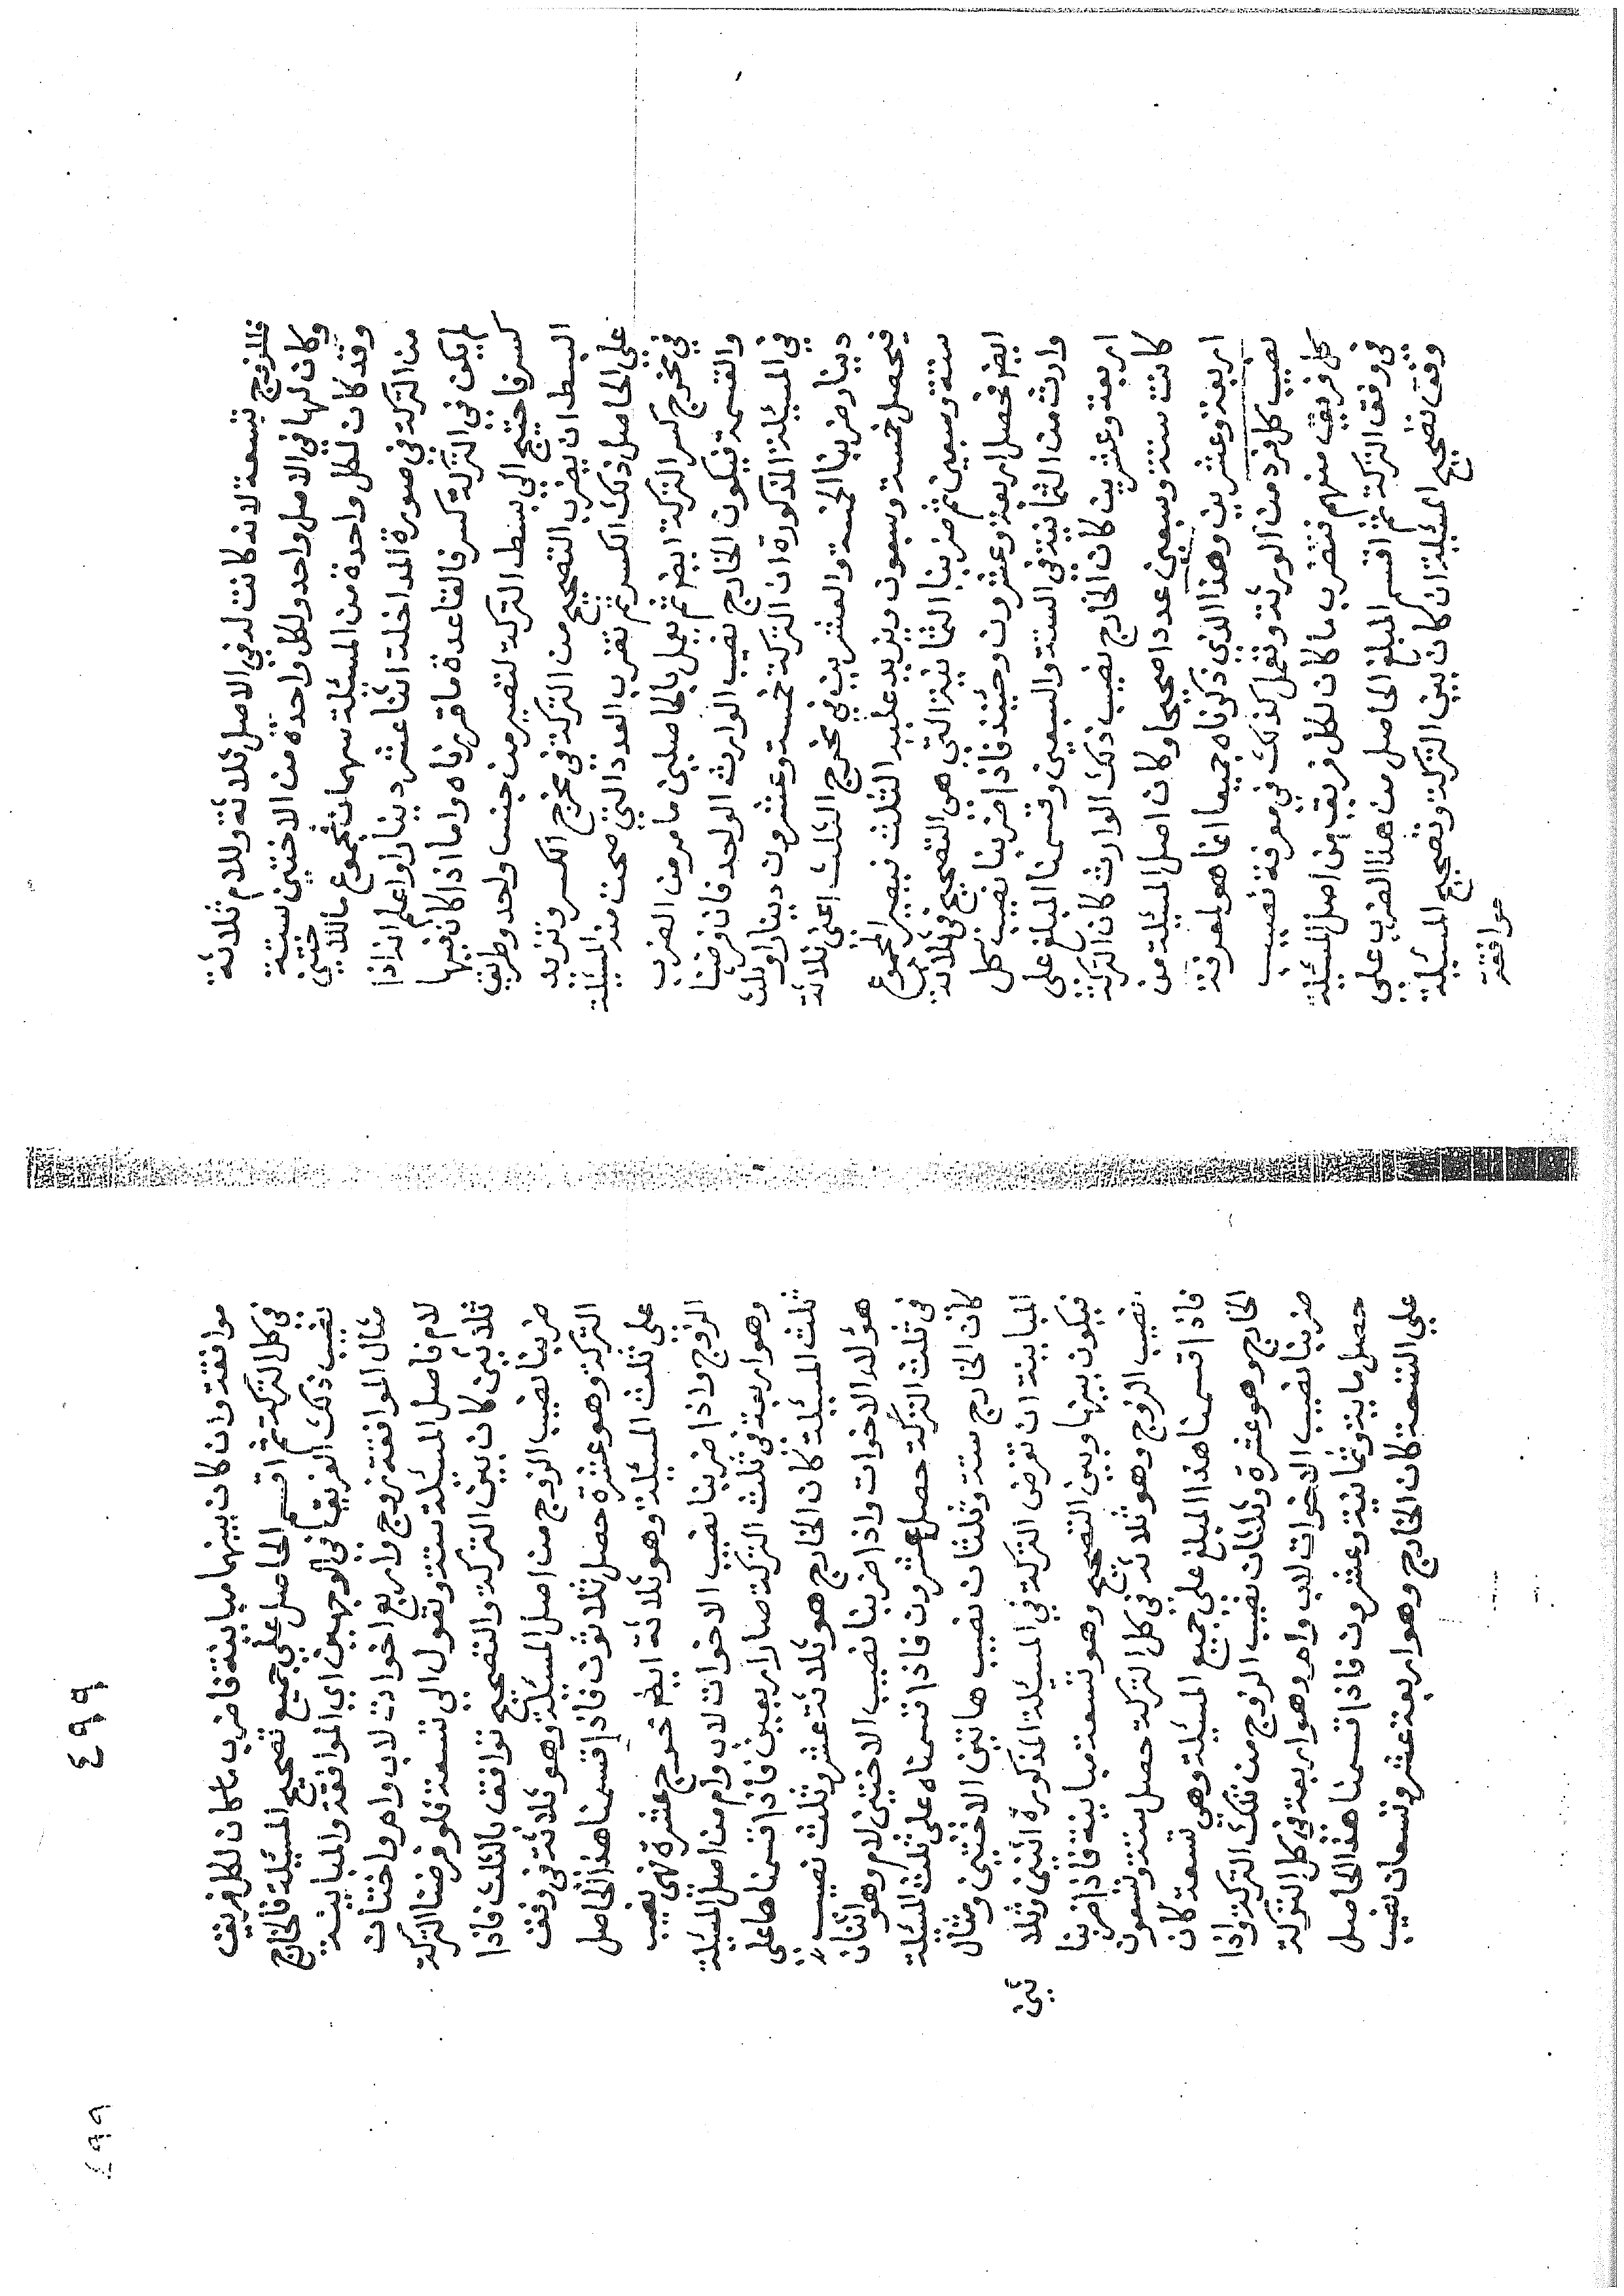 فللزوج تسعة لانه كانت له في الاصل ثلاثة وللام ثلاثة
وكان لها في الاصل واحد ولكل واحدة من الاختين ستة
وقد كان لكل واحدة من المسئلة سهمان فمجموع ما للاختين
من التركة في صورة المداخلة اثنا عشر دينارا واعلم انه اذا
لم يكن في التركة كسر فالقاعدة ما قررناه واما اذا كان فيها
كسر فاحتيج الى بسط التركة لتصير من جنس واحد وطريق
البسط ان يضرب التصحيح من التركة في مخرج الكسر وتزيد
على الحاصل ذلك الكسر ثم تضرب العدد التي صحت منه المسئلة
في مخرج كسر التركة ايضا ثم يعمل بالحاصلين ما مر من الضرب
والقسمة فيكون الخارج نصيب الوارث الواحد فان فرضنا
في المسئلة المذكورة ان التركة خمسة وعشرون دينارا وثلث
دينار ضربنا الخمسة والعشرين في مخرج الثلث اعني ثلاثة
فيحصل خمسة وسبعون ونزيد عليه الثلث فيصير المجموع
ستة وسبعين ثم ضربنا الثمانية التي هي التصحيح في ثلاثة
ايضا فحصل اربعة وعشرون وحينئذ فاذا ضربنا نصيب كل
وارث من الثمانية في الستة والسبعين وقسمنا المبلغ على
اربعة وعشرين كان الخارج نصيب ذلك الوارث كان التركة
كانت ستة وسبعين عددا صحيحا وكان اصل المسئلة من
اربعة وعشرين وهذا الذي ذكرناه جميعا انما هو لمعرفة
نصيب كل فرد من الورثة وتعمل كذلك في معرفة نصيب
كل فريق منهم فتضرب ما كان لكل فريق من اصل المسئلة
في وفق التركة ثم اقسم المبلغ الحاصل من هذا الضرب على
وفق تصحيح المسئلة ان كان بين التركة وتصحيح المسئلة
موافقة
٤٩٩
موافقة وان كان بينهما مباينة فاضرب ما كان لكل فريق
في كل التركة ثم اقسم الحاصل على جميع تصحيح المسئلة فالخارج
نصيب ذلك الفريق في الوجهين اي الموافقة والمباينة
مثال الموافقة زوج واربع اخوات لاب وام واختان
لام فاصل المسئلة ستة وتعول الى تسعة فلو فرضنا التركة
ثلاثين كان بين التركة والتصحيح توافق بالثلث فاذا
ضربنا نصيب الزوج من اصل المسئلة وهو ثلاثة في وفق
التركة وهو عشرة حصل ثلاثون فاذا قسمنا هذا الحاصل
على ثلث المسئلة وهو ثلاثة ايضا خرج عشرة فهي نصيب
الزوج واذا ضربنا نصيب الاخوات لاب وام من اصل المسئلة
وهو اربعة في ثلث التركة صار اربعين فاذا قسمناها على
ثلث المسئلة كان الخارج هو ثلاثة عشر وثلث نصيب
هؤلاء الاخوات واذا ضربنا نصيب الاختين لام وهو اثنان
في ثلث التركة حصل عشرون فاذا قسمناه على ثلث المسئلة
كان الخارج ستة وثلثان نصيب هاتين الاختين ومثال
المباينة ان تفرض التركة في المسئلة المذكورة اثنين وثلاثين
فيكون بينها وبين التصحيح وهو تسعة مباينة فاذا ضربنا
نصيب الزوج وهو ثلاثة في كل التركة حصل ستة وتسعون
فاذا قسمنا هذا المبلغ على جميع المسئلة وهي تسعة كان
الخارج وهو عشرة وثلثان نصيب الزوج من تلك التركة واذا
ضربنا نصيب الاخوات لاب وام وهو اربعة في كل التركة
حصل ماية وثمانية وعشرون فاذا قسمنا هذا الحاصل
على التسعة كان الخارج وهو اربعة عشر وتسعان نصيب
٤٩٩